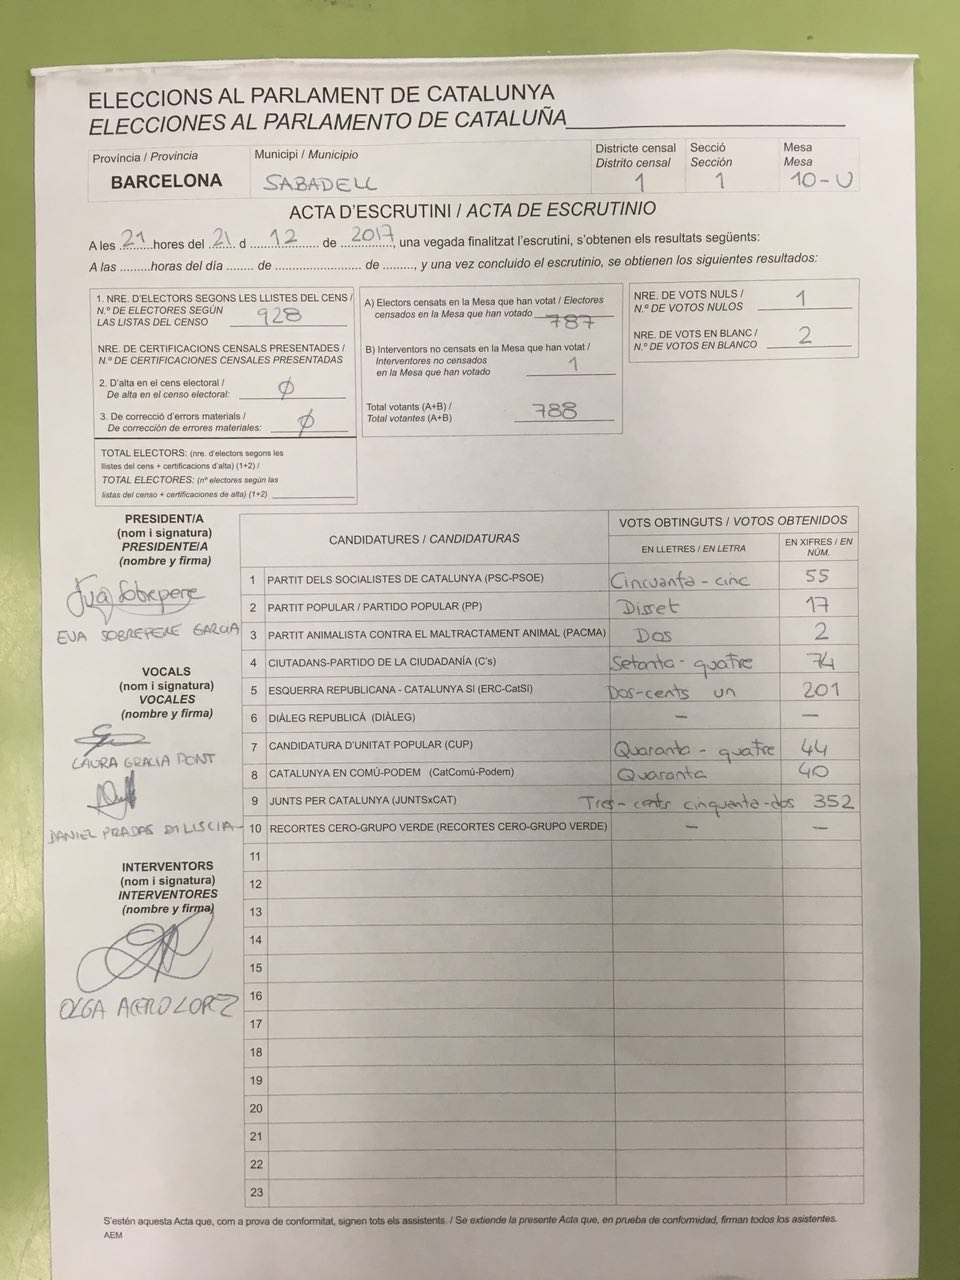 ELECCIONS AL PARLAMENT DE CATALUNYA
ELECCIONES AL PARLAMENTO DE CATALUÑA
Provincia / Provincia
BARCELONA
Municipi / Municipio
SABADELL
Districte censal
Distrito censal
1
Secció
Sección
1
Mesa
Mesa
10-U
ACTA D'ESCRUTINI / ACTA DE ESCRUTINIO
A les 21 hores del 21 d 12 de 2017, una vegada finalitzat l'escrutini, s'obtenen els resultats següents:
A las .........horas del día ........ de .......................... de ........., y una vez concluido el escrutinio, se obtienen los siguientes resultados:
1. NRE. D'ELECTORS SEGONS LES LLISTES DEL CENS /
N.º DE ELECTORES SEGÚN
LAS LISTAS DEL CENSO 928
NRE. DE CERTIFICACIONS CENSALS PRESENTADES /
N.º DE CERTIFICACIONES CENSALES PRESENTADAS
2. D'alta en el cens electoral /
De alta en el censo electoral: Ø
3. De correcció d'errors materials /
De corrección de errores materiales: Ø
TOTAL ELECTORS: (nre. d'electors segons les
llistes del cens + certificacions d'alta) (1+2) /
TOTAL ELECTORES: (nº electores según las
listas del censo + certificaciones de alta) (1+2)
A) Electors censats en la Mesa que han votat / Electores
censados en la Mesa que han votado 787
B) Interventors no censats en la Mesa que han votat /
Interventores no censados
en la Mesa que han votado 1
Total votants (A+B) /
Total votantes (A+B) 788
NRE. DE VOTS NULS /
N.º DE VOTOS NULOS 1
NRE. DE VOTS EN BLANC /
N.º DE VOTOS EN BLANCO 2
PRESIDENT/A
(nom i signatura)
PRESIDENTE/A
(nombre y firma)
Eva Sobrepere
EVA SOBREPERE GARCIA
VOCALS
(nom i signatura)
VOCALES
(nombre y firma)
LAURA GRACIA PONT
DANIEL PRADAS DI LISCIA
INTERVENTORS
(nom i signatura)
INTERVENTORES
(nombre y firma)
OLGA ACERO LOPEZ
CANDIDATURES / CANDIDATURAS
VOTS OBTINGUTS / VOTOS OBTENIDOS
EN LLETRES / EN LETRA
EN XIFRES / EN NÚM.
1 PARTIT DELS SOCIALISTES DE CATALUNYA (PSC-PSOE) Cincuanta-cinc 55
2 PARTIT POPULAR / PARTIDO POPULAR (PP) Disset 17
3 PARTIT ANIMALISTA CONTRA EL MALTRACTAMENT ANIMAL (PACMA) Dos 2
4 CIUTADANS-PARTIDO DE LA CIUDADANÍA (C's) Setanta-quatre 74
5 ESQUERRA REPUBLICANA - CATALUNYA SI (ERC-CatSí) Dos-cents un 201
6 DIÀLEG REPUBLICÀ (DIÀLEG) — —
7 CANDIDATURA D'UNITAT POPULAR (CUP) Quaranta-quatre 44
8 CATALUNYA EN COMÚ-PODEM (CatComú-Podem) Quaranta 40
9 JUNTS PER CATALUNYA (JUNTSxCAT) Tres-cents cinquanta-dos 352
10 RECORTES CERO-GRUPO VERDE (RECORTES CERO-GRUPO VERDE) — —
11
12
13
14
15
16
17
18
19
20
21
22
23
S'estén aquesta Acta que, com a prova de conformitat, signen tots els assistents. / Se extiende la presente Acta que, en prueba de conformidad, firman todos los asistentes.
AEM